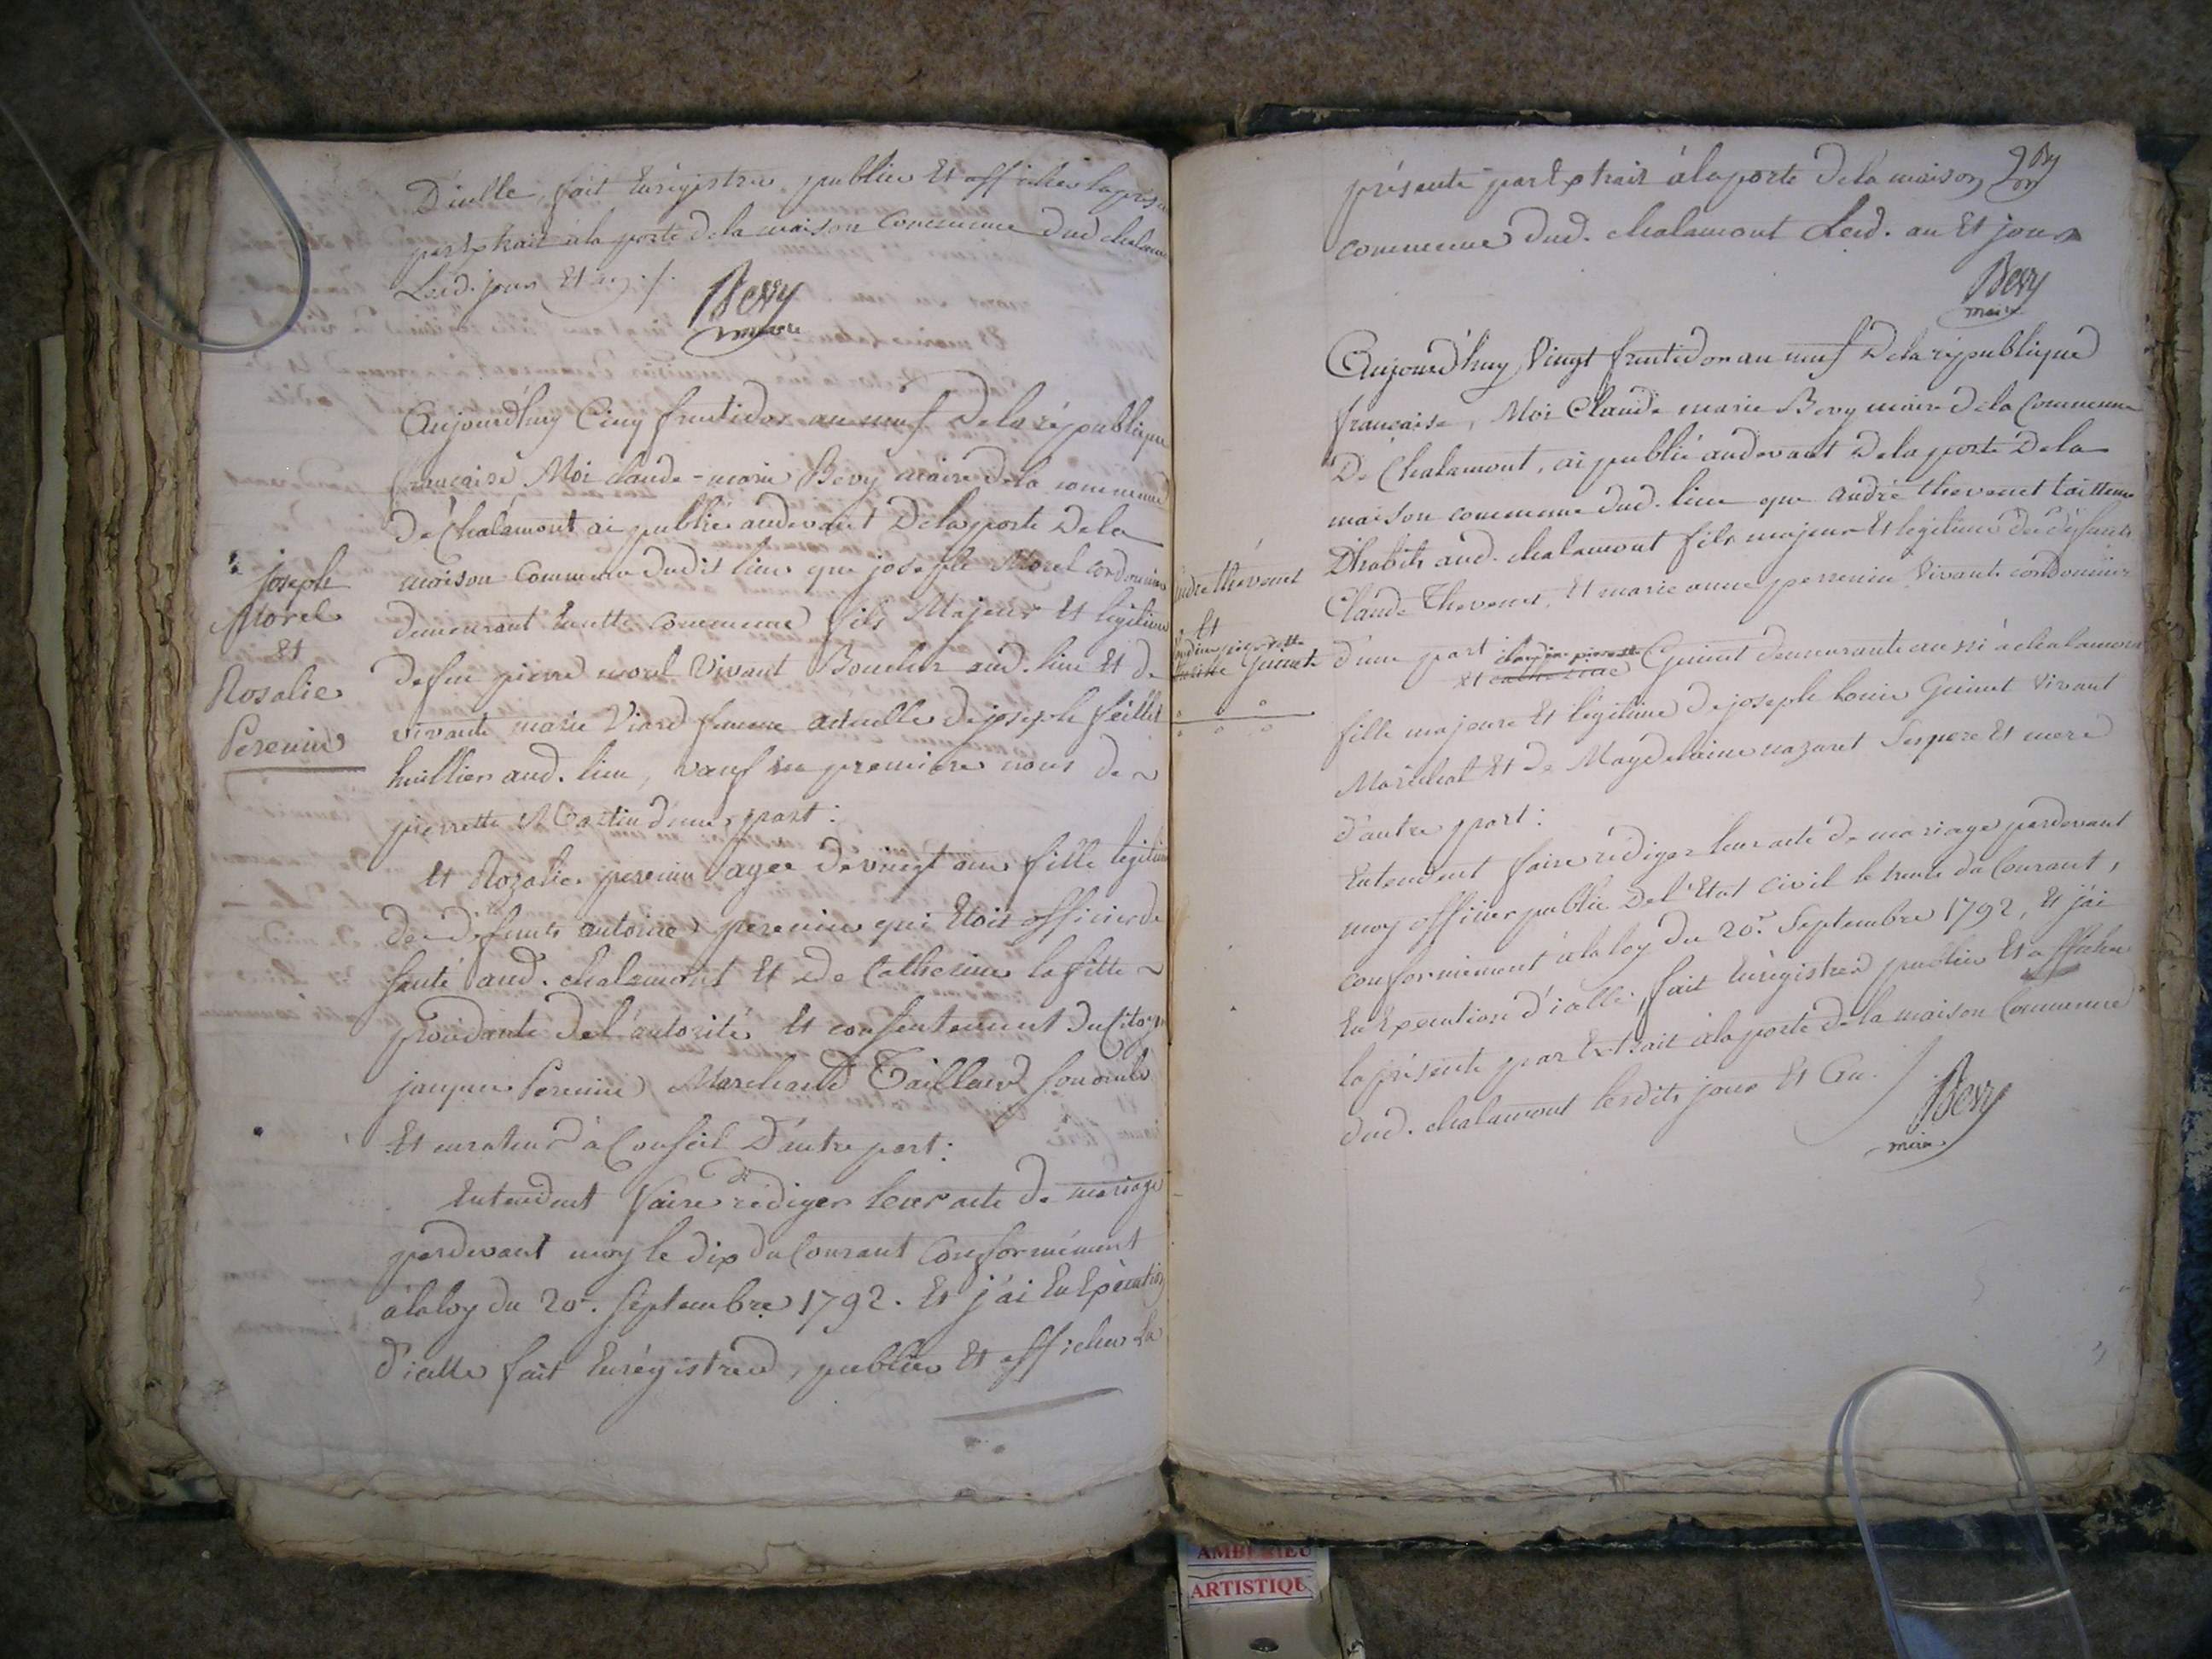 D'icelle, fait Enrégistrer publier Et afficher la prése
par Extrait à la porte de la maison Commune dud chalam
Lesd. jour Et an ./.
Bevy
maire
Aujourd'huy Cinq fructidor an neuf De la république
française Moi claude-marie Bevy maire de la commune
De Chalamont ai publié audevant De la porte De la
maison Commune dudit lieu que joseph Morel cordonnier
demeurant En cette commune fils Majeur Et légitime
de feu pierre morel Vivant Boucher aud. lieu Et de
vivante marie Viard femme actuelle de joseph feillet
huillier aud. lieu, veuf en premiere noces de
pierrette Martin d'une part :
Joseph
Morel
Et
Rosalie
Perenin
Et Rozalie perenin agee de vingt ans fille légitime
de défunts antoine perenin qui Etoit officier de
santé aud. chalamont Et De Catherine lafitte
procédante de l'autorité Et consentement du Citoyen
jacques Perenin Marchand Tailleur son oncle
Et curateur à Conseil D'autre part :
Entendent faire rédiger leur acte de mariage
pardevant moy le dix du Courant Conformément
à la loy du 20e. Septembre 1792. Et j'ai En Exécution
d'icelle fait Enrégistrer, publier Et afficher La
présente par Extrait à la porte de la maison
commune dud. chalamont Lesd. an Et jour
Bevy
maire
Aujourd'huy Vingt fructidor an neuf De la république
française, Moi Claude marie Bevy maire de la Commune
De Chalamont, ai publié audevant De la porte De la
maison commune dud. lieu que andré thevenet tailleur
D'habits aud. chalamont fils majeur Et légitime de défunts
Claude Thevenet, Et marie anne perrenin Vivants cordonnier
d'une part
Et claudine pierrette Guinet demeurante aussi à chalamont
andré thevenet
Et
claudine pierrette
Guinet
fille majeure Et légitime de joseph louis Guinet Vivant
Maréchal Et de Magdelaine nazaret Ses pere Et mere
d'autre part :
Entendent faire rédiger leur acte de mariage pardevant
moy officier public De l'Etat Civil le trente du Courant,
conformément à la loy du 20e. Septembre 1792, Et j'ai
En Exécution d'icelle, fait Enrégistrer publier Et afficher
la présente par Extrait à la porte de la maison Commune
dud. chalamont lesdits jour Et an. /
Bevy
maire
AMBERIEU
ARTISTIQU